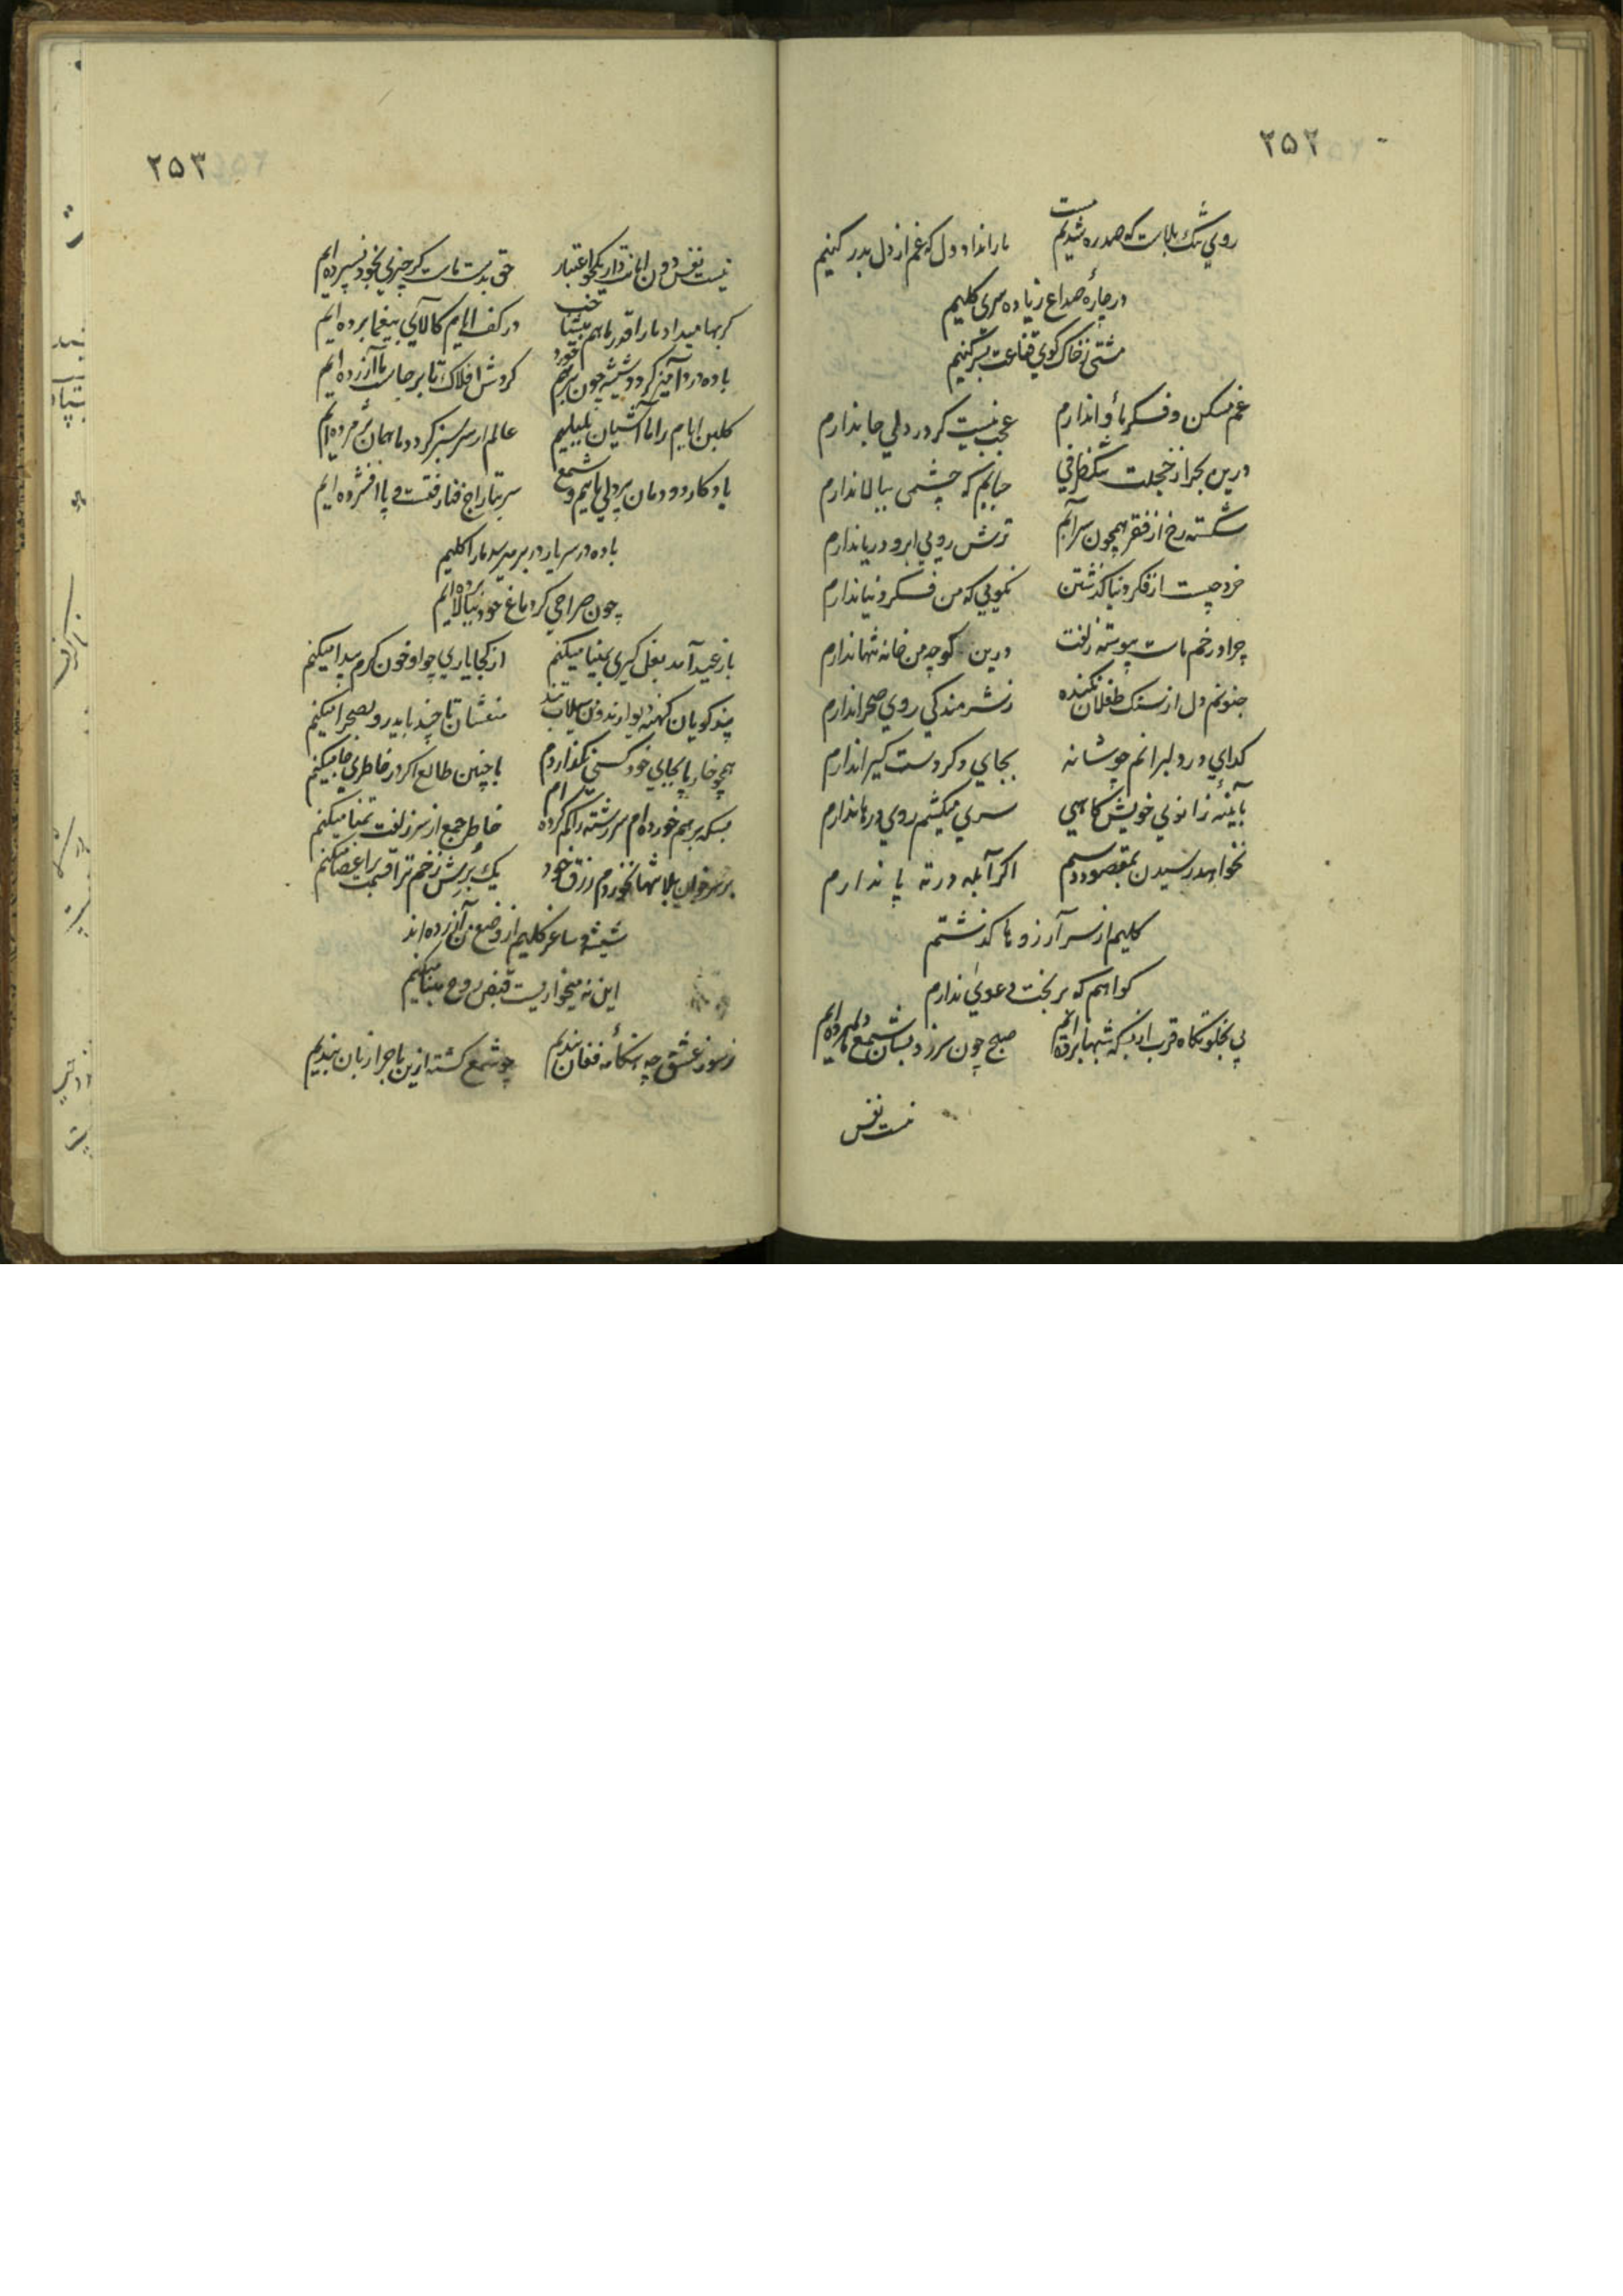 ۲۵۲
روي تنك بلاست كه صد ره شديم مست
ما را نداد دل كه غم از دل بدر كنيم
در چارهٔ صداع زياده سري كليم
مشتي ز خاك كوي قناعت بسر كنيم
غم مسكن و فكر مأوا ندارم
عجب نيست كر در دلي جا ندارم
درين بحر از خجلت تنك ظرفي
حبابم كه چشمي ببالا ندارم
شكسته رخ از فقر همچون سرابم
ترش رويي ابرو دريا ندارم
خرد چيست از فكر دنيا كذشتن
نكويي كه من فكر دنيا ندارم
چرا در خم مات پيوسته زلفت
درين كوچه من خانه تنها ندارم
جنونم دل از سنك طفلان نكنده
ز شرمندكي روي صحرا ندارم
كداي در دلبرانم چو شانه
بجاي دكر دست كيرا ندارم
بآينهٔ زانويي خويش كاهي
سري ميكشم روي درها ندارم
نخواهد رسيدن بمقصود دستم
اكر آبله در ته پا ندارم
كليم از سر آرزوها كذشتم
كواهم كه بر بخت دعوي ندارم
پي بخلوتكاه قرب از بسكه شبها برده ايم
صبح چون سر زد بسان شمع ما هم مرده ايم
نيست نفس
۲۵۳
نيست نفس دون امانتدار يكجو اعتبار
حق بدست ماست كر چيزي بخود نسپرده ايم
كر بها ميداد ما را قدر ما هم ميشناخت
در كف ايام كالاي بيغما برده ايم
باده درد آميز كردد شيشه چون بر هم خورد
كردش افلاك تا برجاست ما آزرده ايم
كلبن ايام را ما آشيان بلبليم
عالم ار سر سبز كردد ما همان پژمرده ايم
يادكار دودمان پردلي ماييم و شمع
سر بتاراج فنا رفتست و پا افشرده ايم
باده در سر يار در بر ميرسد ما را كليم
چون صراحي كر دماغ خود ببالا برده ايم
باز عيد آمد بغل كيري بمينا ميكنم
از كجا ياري چو او خون كرم پيدا ميكنم
پندكويان كهنه ديوارند و من سيلاب تند
منعشان تا چند بايد رو بصحرا ميكنم
همچو خار پا بجايي خود كسي نكذاردم
با چنين طالع اكر در خاطري جا ميكنم
بسكه بر هم خورده ام سر رشته را كم كرده ام
خاطر جمع از سر زلفت تمنا ميكنم
بر سر خوان بلا تنها نخوردم رزق خود
يك برش زخم ترا قسمت باعضا ميكنم
شيشه و ساغر كليم از وضع من آزرده اند
اين نه ميخواريست قبض روح مينا ميكنم
ز سوز عشق چه هنكامه فغان بنديم
چو شمع كشته ازين ماجرا زبان بنديم